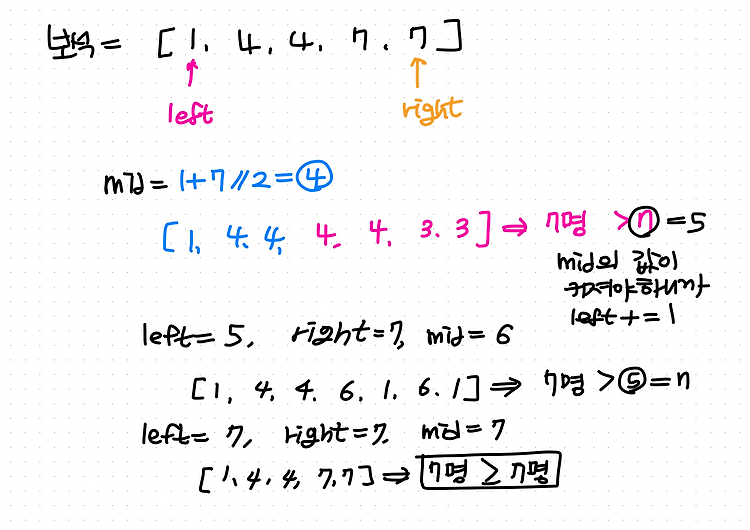 보석 = [1, 4, 4, 7, 7]
left right
mid = 1+7//2 = 4
[1, 4, 4, 4, 4, 3, 3] ⇒ 7명 > n = 5
mid의 값이
커져야하니까
left += 1
left = 5, right = 7, mid = 6
[1, 4, 4, 6, 1, 6, 1] ⇒ 7명 > 5 = n
left = 7, right = 7, mid = 7
[1, 4, 4, 7, 7] ⇒ 7명 ≥ 7명